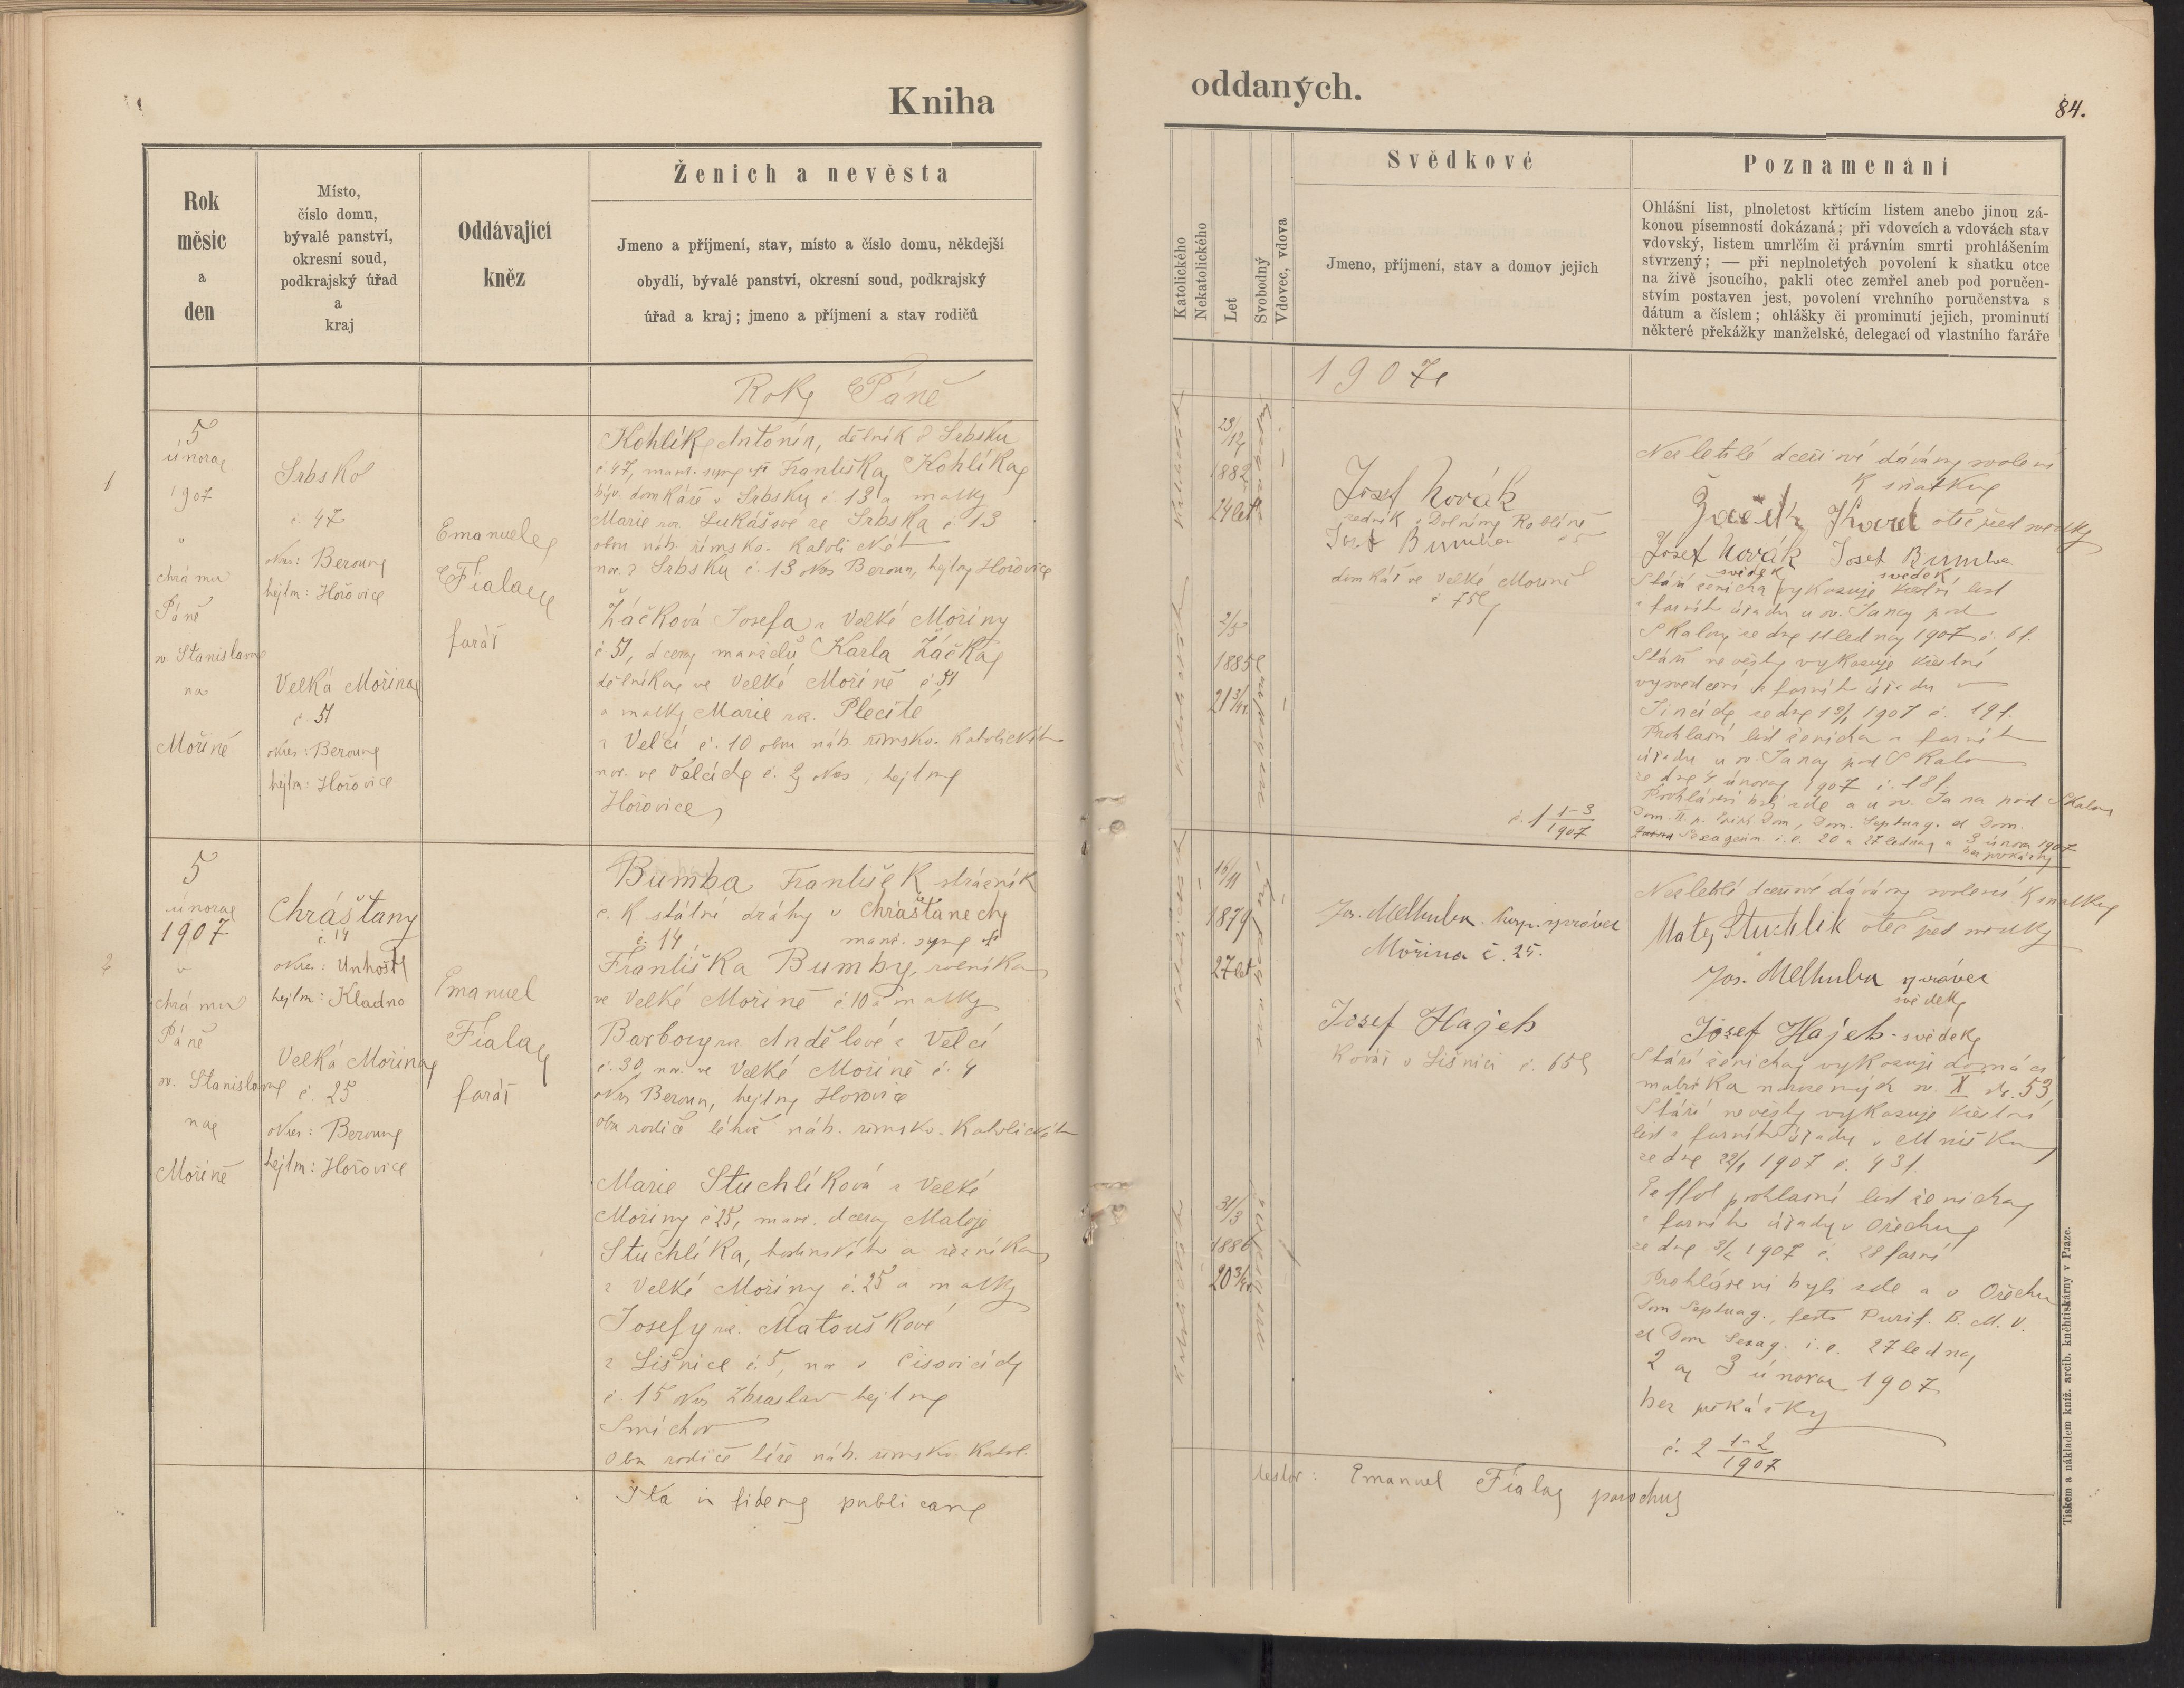 Kniha
oddaných.
84.
Rok
měsíc
a
den
Místo,
číslo domu,
bývalé panství,
okresní soud,
podkrajský úřad
a
kraj
Oddávající
kněz
Ženich a nevěsta
Jmeno a příjmení, stav, místo a číslo domu, někdejší
obydlí, bývalé panství, okresní soud, podkrajský
úřad a kraj; jmeno a příjmení a stav rodičů
Katolického
Nekatolického
Let
Svobodný
Vdovec, vdova
Svědkové
Jmeno, příjmení, stav a domov jejich
Poznamenání
Ohlášní list, plnoletost křtícím listem anebo jinou zá-
konou písemností dokázaná; při vdovcích a vdovách stav
vdovský, listem umrlčím či právním smrti prohlášením
stvrzený; — při neplnoletých povolení k sňatku otce
na živě jsoucího, pakli otec zemřel aneb pod poručen-
stvím postaven jest, povolení vrchního poručenstva s
dátum a číslem; ohlášky či prominutí jejich, prominutí
některé překážky manželské, delegací od vlastního faráře
Roku Páně
1907
1
5
února
1907
v
chrámu
Páně
sv. Stanislava
na
Mořině
Srbsko
č 47
okres: Beroun
hejtm: Hořovice
Velká Mořina
č. 51
okres: Beroun
hejtm: Hořovice
Emanuel
Fiala
farář
Kohlík Antonín, dělník z Srbsku
č 47, manž. syn Františka Kohlíka
býv. domkáře v Srbsku č 13 a matky
Marie roz. Lukášové ze Srbska č 13
obou náb. římsko-katolického
nar. v Srbsku č. 13 okres Beroun, hejtm Hořovice
Žáčková Josefa z Velké Mořiny
č 51, dcera manželů Karla Žáčka
dělníka ve Velké Mořině č 51
a matky Marie roz. Plecité
z Velcí č. 10 obou náb. římsko-katolického
nar. ve Velcí č. 2 okres, hejtm
Hořovice
23/12
1882
24 let
2/5
1885
21 3/4 r.
Josef Novák
v Dolním Roblíně
Josef Bumba
domkář ve Velké Mořině
č 75
č. 1 1-3/1907
Nezletilé dceři své dávám svolení
k sňatku
Žáček Karel otec před svědky
Josef Novák Josef Bumba
svědek svědek
Stáří ženicha vykazuje křestní list
z farního úřadu u sv. Jana pod
Skalou ze dne 11 ledna 1907 č. 6 f.
Stáří nevěsty vykazuje křestní
vysvědčení z farního úřadu v
ze dne 13/1 1907 č. 19 f.
Prohlašní list ženicha z farního
úřadu u sv. Jana pod Skalou
ze dne 4 února 1907 č. 18 f.
Prohlášeni byli zde a u sv. Jana pod Skalou
Dom. II. p. Epiph Dom, Dom. Septuag. et Dom.
Sexagesim. i. e. 20 a 27 ledna a 3 února 1907
bez překážky
2
5
února
1907
v
chrámu
Páně
sv. Stanislava
na
Mořině
Chrášťany
č. 14
okres: Unhošť
hejtm: Kladno
Velká Mořina
č. 25
okres: Beroun
hejtm: Hořovice
Emanuel
Fiala
farář
Bumba František strážník
c. k. státní dráhy v Chrášťanech
č. 14 manž. syn
Františka Bumby, rolníka
ve Velké Mořině č. 10 a matky
Barbory roz. Andělové z Velcí
č. 30, nar. ve Velké Mořině č. 4
okres Beroun, hejtm Hořovice
oba rodiče téhož náb. římsko-katolického
Marie Stuchlíková z Velké
Mořiny č 25, manž. dcera Matěje
Stuchlíka, hostinského a řezníka
z Velké Mořiny č. 25 a matky
Josefy roz. Matouškové
z Líšnice č. 5, nar. v Čisovicích
č. 15 okres Zbraslav hejtm
Smíchov
oba rodiče téže náb. římsko-katol.
16/11
1879
27 let
31/3
1886
20 3/4 r.
Jos. Melhuba, hosp. správce
Mořina č. 25.
Josef Hájek
kovář v Líšnici č. 65
Nezletilé dceři své dávám svolení k sňatku
Matěj Stuchlík otec před svědky
Jos. Melhuba správce
svědek
Josef Hájek svědek
Stáří ženicha vykazuje domácí
matrika narozených sv. X str. 53,
Stáří nevěsty vykazuje křestní
list z farního úřadu v Mníšku
ze dne 22/1 1907 č. 43 f.
prohlašní list ženicha
z farního úřadu v Ořechu
ze dne 3/2 1907 č. 28 farní
Prohlášeni byli zde a v Ořechu
Dom Septuag., festo Purif. B. M. V.
et Dom Sexag. i. e. 27 ledna
2 a 3 února 1907
bez překážky
č. 2 1-2/1907
Ita in fidem publicam
testor: Emanuel Fiala parochus
Tiskem a nákladem kníž. arcib. knëhtiskárny v Praze.